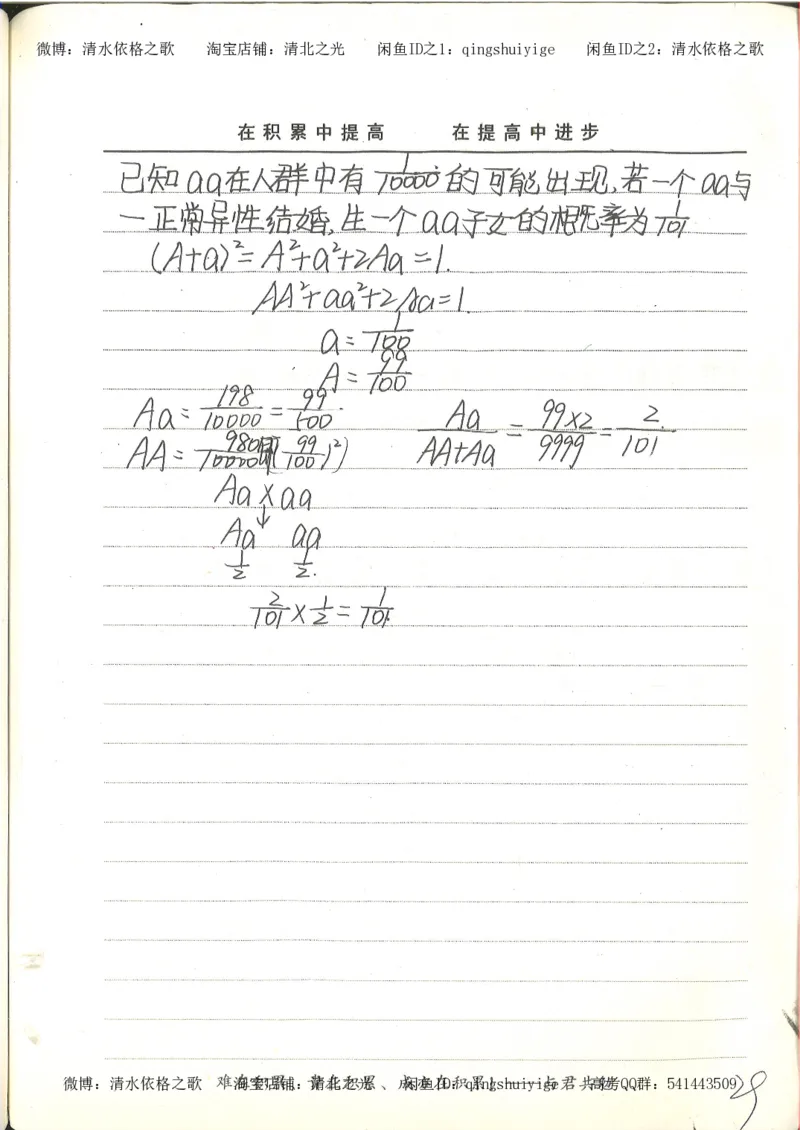 微博：清水依格之歌 淘宝店铺：清北之光 闲鱼ID之1：qingshuiyige 闲鱼ID之2：清水依格之歌
在积累中提高 在提高中进步
已知aa在人群中有1/10000的可能出现,若一个aa与
一正常异性结婚,生一个aa子女的概率为1/101
(A+a)²=A²+a²+2Aa=1.
AA²+aa²+2Aa=1.
a=1/100
A=99/100
Aa=198/10000=99/100. Aa/(AA+Aa)=99×2/9999=2/101
AA= (99/100)²)
Aa×aa
↓
Aa aa
1/2 1/2.
2/101×1/2=1/101
微博：清水依格之歌 淘宝店铺：清北之光 闲鱼ID：qingshuiyige 高考QQ群：541443509
29